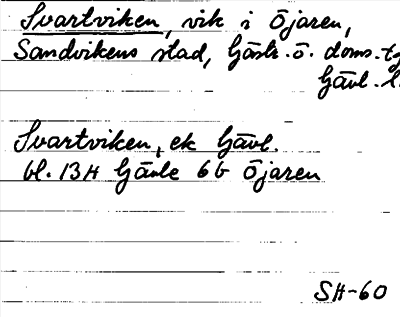 Svartviken, vik i Öjaren,
Sandvikens stad, Gästr. ö. doms.
Gävl. l.
Svartviken, ek Gävl.
bl. 13H Gävle 6b Öjaren
SH-60